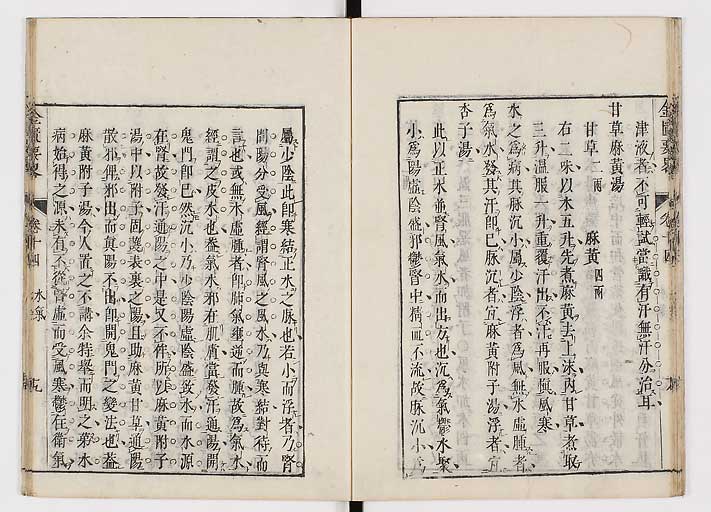 津液者不可輕試當識有汗無汗分治耳
甘草麻黃湯
甘草二兩 麻黃四兩
右二味以水五升先煮麻黃去上沫內甘草煮取
三升溫服一升重覆汗出不汗再服慎風寒
水之為病其脉沉小屬少陰浮者為風無水虛脹者
為氣水發其汗即已脉沉者宜麻黃附子湯浮者宜
杏子湯
此以正水並腎風氣水而出方也沉為氣鬱水聚
小為陽虛陰盛邪鬱腎中積而不流故脉沉小
屬少陰此即寒結正水之脉也若小而浮者乃腎
間陽分受風經謂腎風之風水乃與寒結對待而
言也或無水虛脹者即肺氣壅逆而脹故為氣水
經謂之皮水也蓋氣水邪在肌膚當發汗通陽開
鬼門即已然沉小乃少陰陽虛陰盛致水而水源
在腎故發汗通陽之中是又不伴所以麻黃附子
湯中以附子固護表裏之陽且助麻黃甘草通陽
散邪俾邪出而真陽不出即開鬼門之變法也蓋
麻黃附子湯今人置之不講余特舉而明之第水
病始得之源未有不從腎虛而受風寒鬱在衛氣
金匱要畧 卷十四 水氣